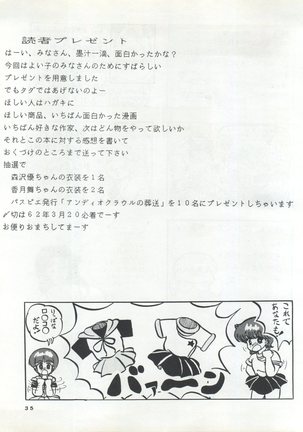 読者プレゼント
はーい、みなさん、墨汁一滴、面白かったかな？
今回はよい子のみなさんのためにすばらしい
プレゼントを用意しました
でもタダではあげないのよー
ほしい人はハガキに
ほしい商品、いちばん面白かった漫画
いちばん好きな作家、次はどん物をやって欲しいか
それとこの本に対する感想を書いて
おくづけのところまで送って下さい
抽選で
森沢優ちゃんの衣装を１名
香月舞ちゃんの衣装を２名
パスピエ発行「アンディオクラウルの葬送」を１０名にプレゼントしちゃいます
〆切は６２年３月２０必着でーす
お便りおまちしてまーす
これで
あなたも
バァーン
りっぱな
だよっ
３５